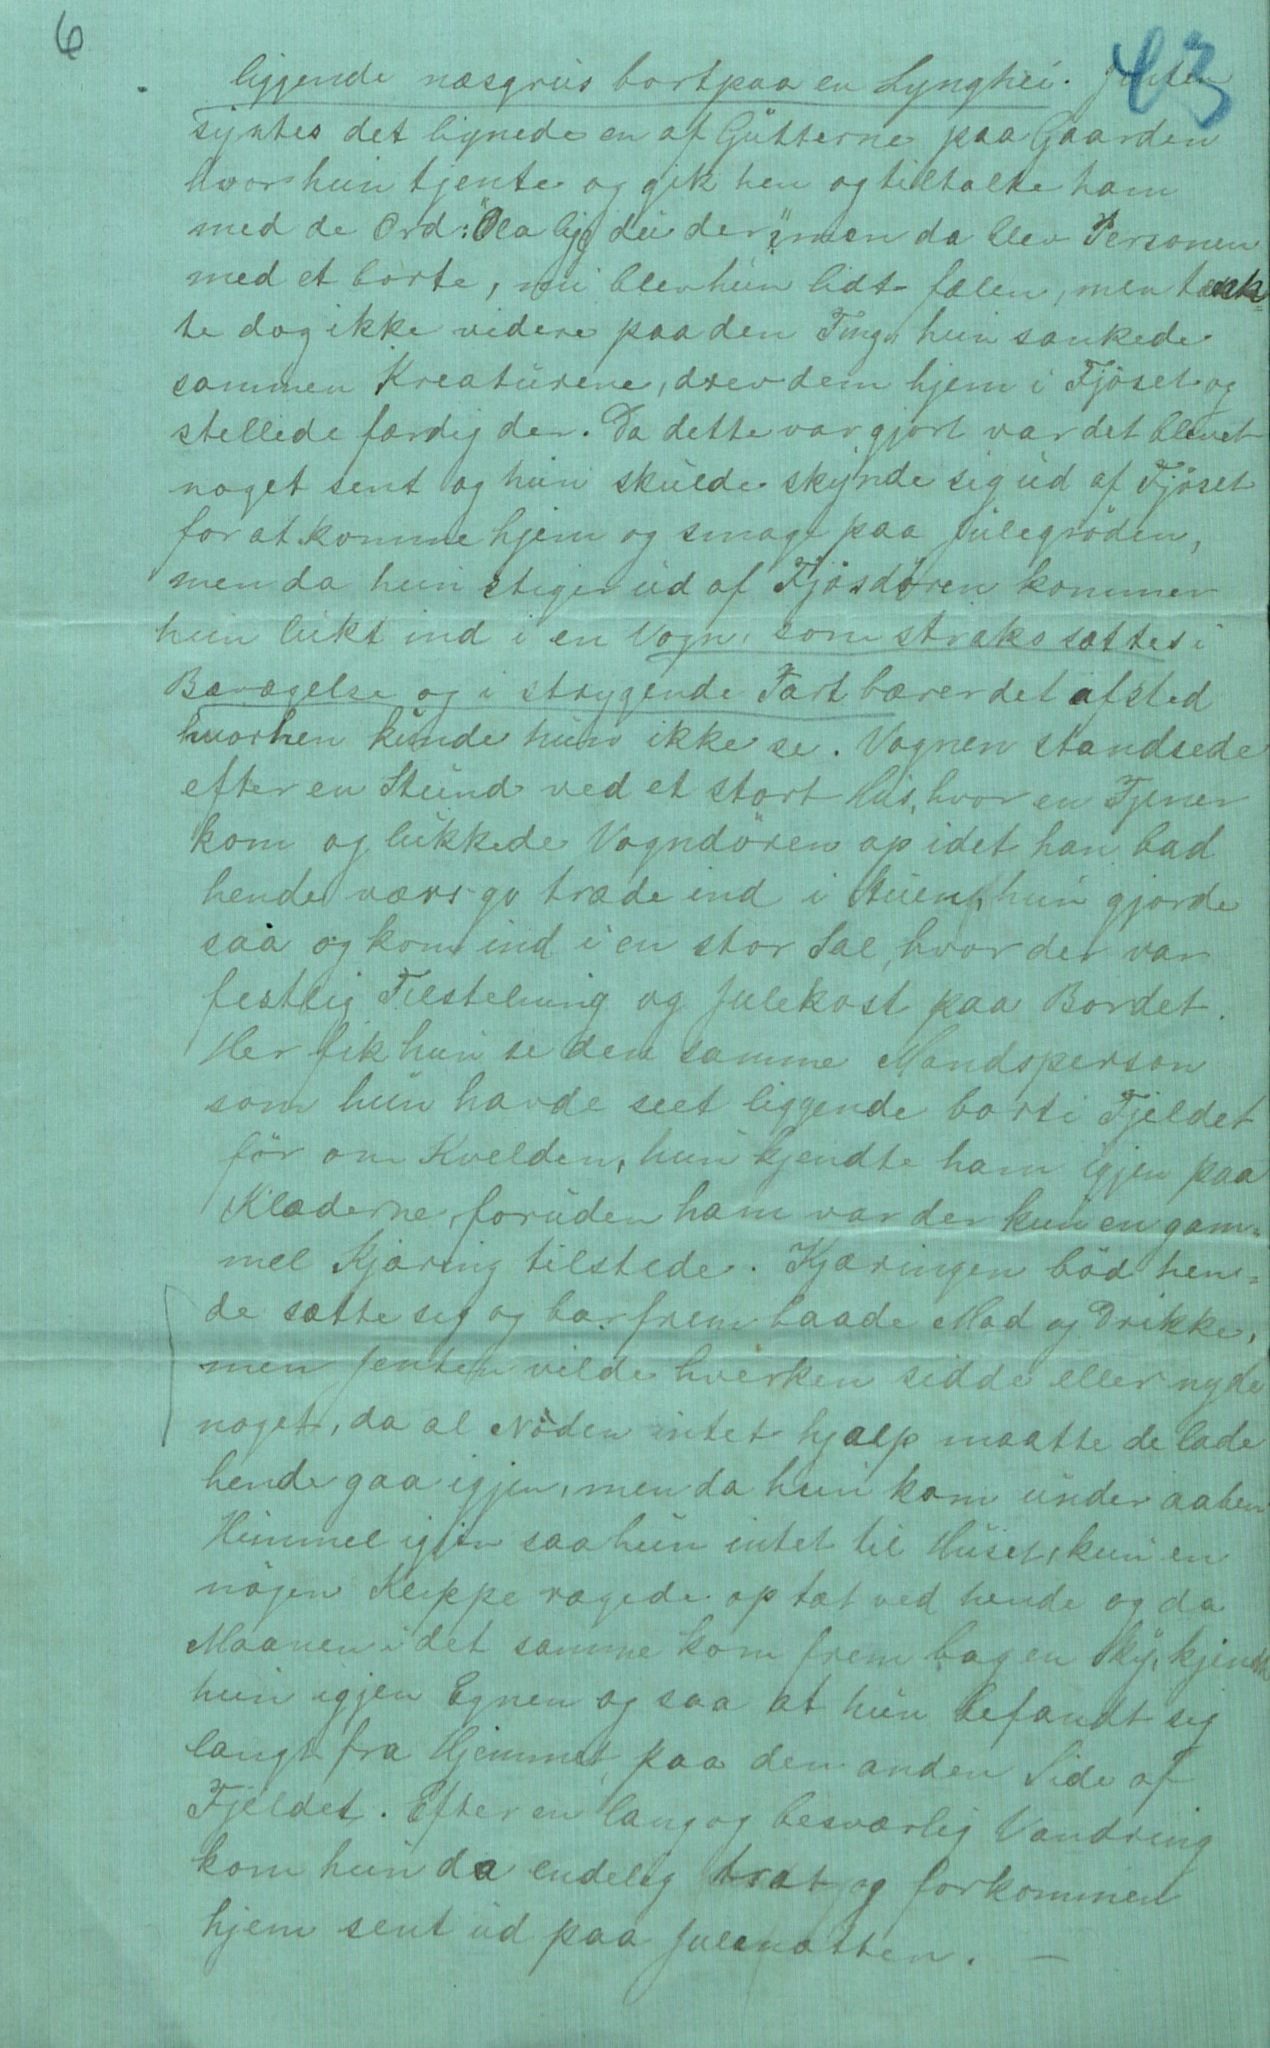 6
43
liggende næsgrus bortpaa en Lynghei. Jenten
syntes det lignede en af Gutterne paa Gaarden
hvor hun tjente og gik hen og tiltalte ham
med de Ord: "Ola ligg du der?" men da blev Personen
med et borte, nu blev hun lidt fælen, men tænk-
te dog ikke videre paa den Ting, hun sankede
sammen Kreaturene, drev dem hjem i Fjöset og
stellede færdig der. Da dette var gjort var det blevet
noget sent og hun skulde skynde sig ud af Fjöset
for at komme hjem og smage paa Julegröden,
men da hun stiger ud af Fjösdören kommer
hun lukt ind i en Vogn, som straks sættes i
Bevægelse og i strygende Fart bærer det afsted
hvorhen kunde hun ikke se. Vognen standsede
efter en Stund ved et stort Hus, hvor en Tjener
kom og lukkede Vogndören op idet han bad
hende værs-go træde ind i Stuen, hun gjorde
saa og kom ind i en stor Sal, hvor der var
festlig Tilstelning og Julekost paa Bordet.
Her fik hun se den samme Mandsperson
som hun havde seet liggende borti Fjeldet
för om Kvelden, hun kjendte ham igjen paa
Klæderne, foruden ham var der kun en gam-
mel Kjæring tilstede. Kjæringenböd hen-
de sætte sig og bar frem baade Mad og Drikke,
men Jenten vilde hverken sidde eller nyde
noget, da al Nöden intet hjalp maatte de lade
hende gaa igjen, men da hun kom under aaben
Himmel igjen saa hun intet til Huset, kun en
nögen Klippe ragede op tæt ved hende og da
Maanen i det samme kom frem bag en Sky, kjendte
hun igjen Egnen og saa at hun befandt sig
langt fra Hjemmet, paa den anden Side af
Fjeldet. Efter en lang og besværlig Vandring
kom hun da endelig træt og forkommen
hjem sent ud paa Julenatten. —